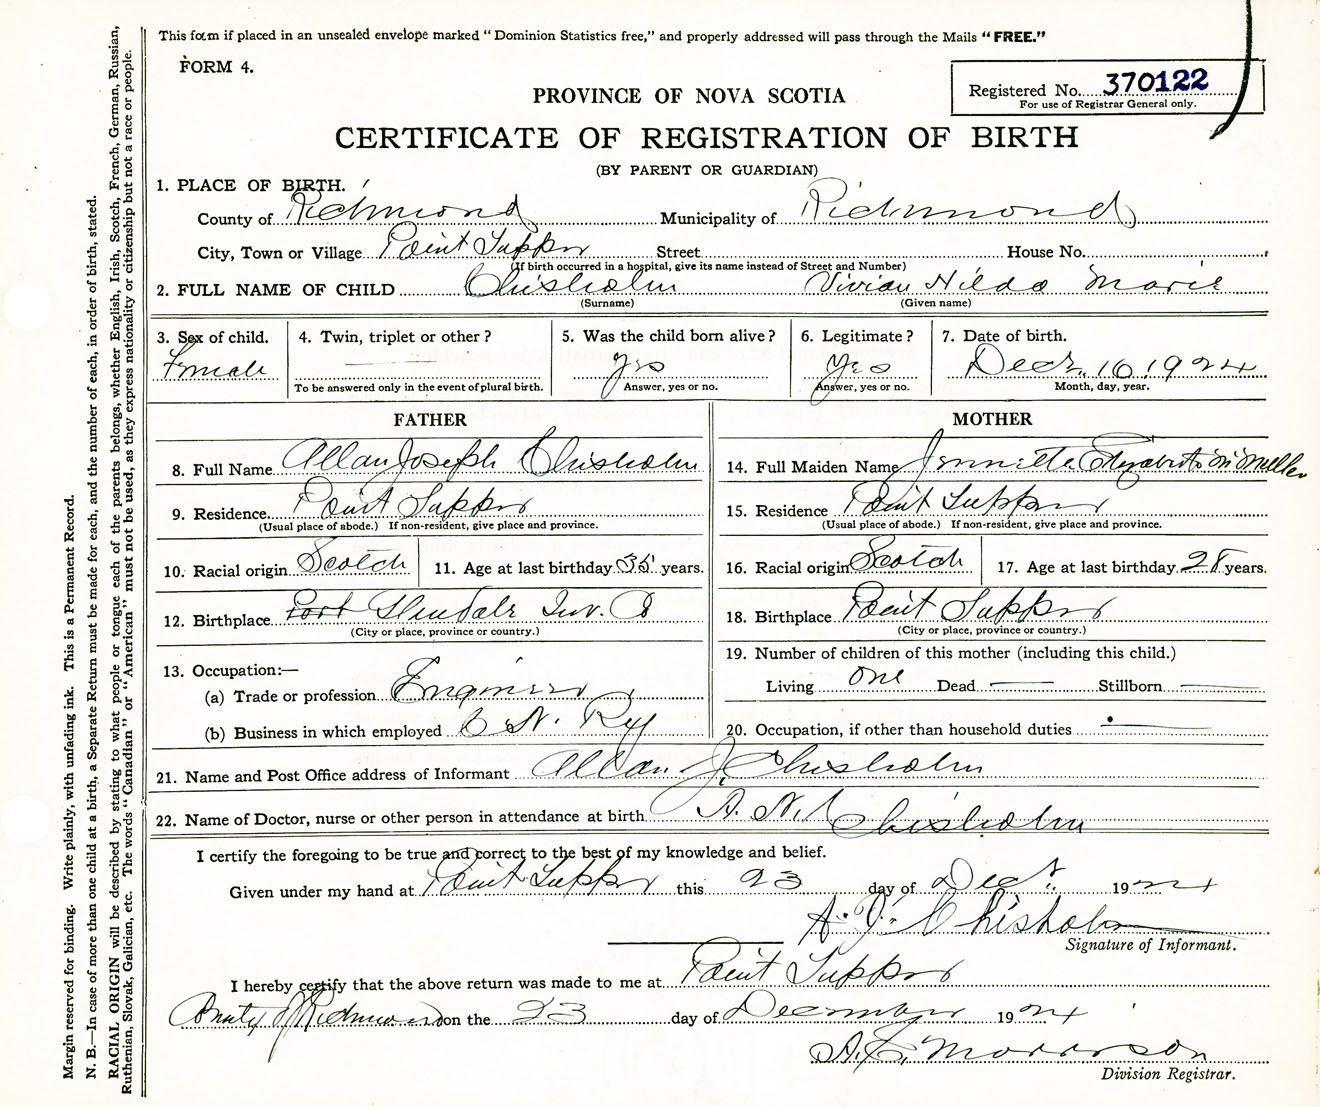 This form if placed in an unsealed envelope marked "Dominion Statistics free," and properly addressed will pass through the Mails "FREE."
FORM 4.
Registered No. 370122
For use of Registrar General only.
PROVINCE OF NOVA SCOTIA
CERTIFICATE OF REGISTRATION OF BIRTH
(BY PARENT OR GUARDIAN)
1. PLACE OF BIRTH.
County of Richmond Municipality of Richmond
City, Town or Village Point Tupper Street House No.
(If birth occurred in a hospital, give its name instead of Street and Number)
2. FULL NAME OF CHILD Chisholm Vivian Hilda Marie
(Surname) (Given name)
3. Sex of child. 4. Twin, triplet or other? 5. Was the child born alive? 6. Legitimate? 7. Date of birth.
Female Yes Yes Decr. 16 1924
To be answered only in the event of plural birth. Answer, yes or no. Answer, yes or no. Month, day, year.
FATHER
8. Full Name Allan Joseph Chisholm
9. Residence Point Tupper
(Usual place of abode.) If non-resident, give place and province.
10. Racial origin Scotch 11. Age at last birthday 35 years.
12. Birthplace Port Glendale Inv. Co
(City or place, province or country.)
13. Occupation:—
(a) Trade or profession Engineer
(b) Business in which employed C. N. Ry
MOTHER
14. Full Maiden Name Jennette Elizabeth McMillan
15. Residence Point Tupper
(Usual place of abode.) If non-resident, give place and province.
16. Racial origin Scotch 17. Age at last birthday 28 years.
18. Birthplace Point Tupper
(City or place, province or country.)
19. Number of children of this mother (including this child.)
Living One Dead — Stillborn —
20. Occupation, if other than household duties —
21. Name and Post Office address of Informant Allan J. Chisholm
22. Name of Doctor, nurse or other person in attendance at birth A. N. Chisholm
I certify the foregoing to be true and correct to the best of my knowledge and belief.
Given under my hand at Point Tupper this 23 day of Decr. 1924
A. J. Chisholm
Signature of Informant.
I hereby certify that the above return was made to me at Point Tupper
County of Richmond on the 23 day of December 1924
Morrison
Division Registrar.
Margin reserved for binding. Write plainly, with unfading ink. This is a Permanent Record.
N. B.—In case of more than one child at a birth, a Separate Return must be made for each, and the number of each, in order of birth, stated.
RACIAL ORIGIN will be described by stating to what people or tongue each of the parents belongs, whether English, Irish, Scotch, French, German, Russian,
Ruthenian, Slovak, Galician, etc. The words "Canadian" or "American" must not be used, as they express nationality or citizenship but not a race or people.